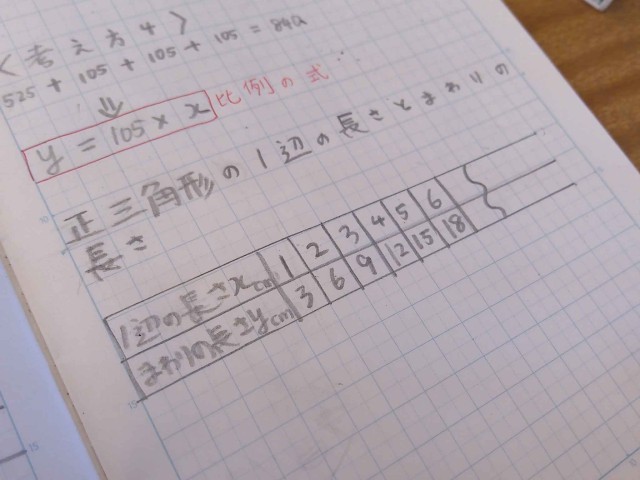 <考え方4>
525+105+105+105=840
⇓
y=105×x 比例の式
正三角形の1辺の長さとまわりの
長さ
1辺の長さxcm 1 2 3 4 5 6
まわりの長さycm 3 6 9 12 15 18